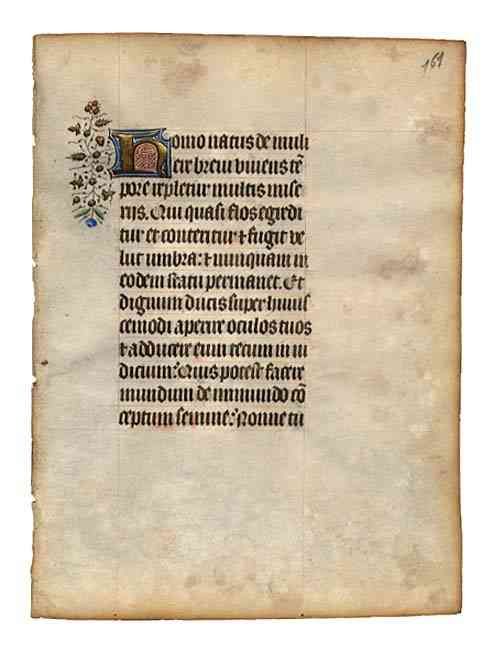 161
Homo natus de muli
ere brevi vivens tē
pore repletur multis mise
riis. Qui quasi flos egredi
tur et conteritur ⁊ fugit ve
lut umbra: ⁊ nunquam in
eodem statu permanet. Et
dignum ducis super huius
cemodi aperire oculos tuos
⁊ adducere eum tecum in iu
dicium? Quis potest facere
mundum de inmundo cō
ceptum semine? Nonne tu